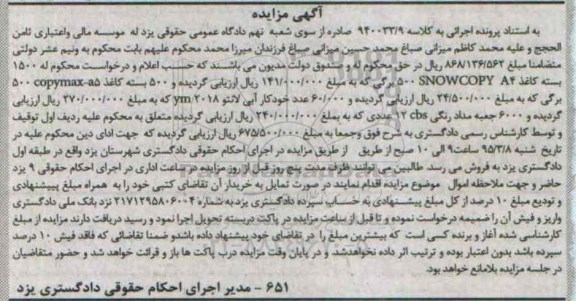 آگهی مزایده
به استناد پرونده اجرائی به کلاسه ۹۴۰۰۳۳/۹ صادره از سوی شعبه نهم دادگاه عمومی حقوقی یزد له موسسه مالی واعتباری ثامن
الحجج و علیه محمد کاظم میرزائی صباغ محمد حسین میرزائی صباغ فرزندان میرزا محمد محکوم علیهم بابت محکوم به ونیم عشر دولتی
متضامنا مبلغ ۸۶۸/۱۳۶/۵۶۲ ریال در حق محکوم له و صندوق دولت مدیون می باشند که حسب اعلام و درخواست محکوم له ۱۵۰۰
بسته کاغذ SNOWCOPY A۴ ۵۰۰ برگی که به مبلغ ۱۴۱/۰۰۰/۰۰۰ ریال ارزیابی گردیده و ۵۰۰ بسته کاغذ copymax-a۵ ۵۰۰
برگی که به مبلغ ۲۴/۵۰۰/۰۰۰ ریال ارزیابی گردیده و ۶۰/۰۰۰ عدد خودکار آبی لانتو ym۲۰۱۸ که به مبلغ ۲۷۰/۰۰۰/۰۰۰ ریال ارزیابی
گردیده و ۶۰۰۰ جعبه مداد رنگی cbs ۱۲ عددی که به مبلغ ۲۴۰/۰۰۰/۰۰۰ ریال ارزیابی گردیده متعلق به محکوم علیه ردیف اول توقیف
و توسط کارشناس رسمی دادگستری به شرح فوق وجمعا به مبلغ ۶۷۵/۵۰۰/۰۰۰ ریال ارزیابی گردیده که جهت ادای دین محکوم علیه در
تاریخ شنبه ۹۵/۳/۸ ساعت۹ الی ۱۰ صبح از طریق از طریق مزایده در اجرای احکام حقوقی دادگستری شهرستان یزد واقع در طبقه اول
دادگستری یزد به فروش می رسد طالبین می توانند ظرف مدت پنج روز قبل از روز مزایده در ساعت اداری در اجرای احکام حقوقی ۹ یزد
حاضر و جهت ملاحظه اموال موضوع مزایده اقدام نمایند در صورت تمایل به خریدار آن تقاضای کتبی خود را به همراه مبلغ پیشنهادی
و تودیع مبلغ ۱۰ درصد از کل مبلغ پیشنهادی به حساب سپرده دادگستری یزد به شماره ۲۱۷۱۲۹۵۸۰۶۰۰۴ نزد بانک ملی دادگستری
واریز و فیش آن را ضمیمه درخواست نموده و تا قبل از ساعت مزایده در پاکت دربسته تحویل اجرا نمود و رسید دریافت دارند مزایده از مبلغ
کارشناسی شده آغاز و برنده کسی است که بیشترین مبلغ را در تقاضای خود پیشنهاد داده باشدو ضمنا تقاضائی که فاقد فیش ۱۰ درصد
سپرده باشد بدون اعتبار بوده و ترتیب اثر داده نخواهدشد. و در پایان وقت مزایده درب پاکت ها باز و قرائت خواهد شد و حضور متقاضیان
در جلسه مزایده بلامانع خواهد بود.
۶۵۱ - مدیر اجرای احکام حقوقی دادگستری یزد